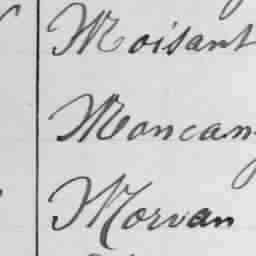 Moisant
Moncam
Morvan